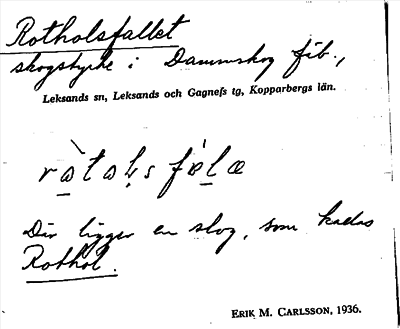 Rotholsfallet
skogstycke i Dammskog fäb.,
Leksands sn, Leksands och Gagnefs tg, Kopparbergs län.
Där ligger en skog, som kallas
Rothol.
ERIK M. CARLSSON, 1936.